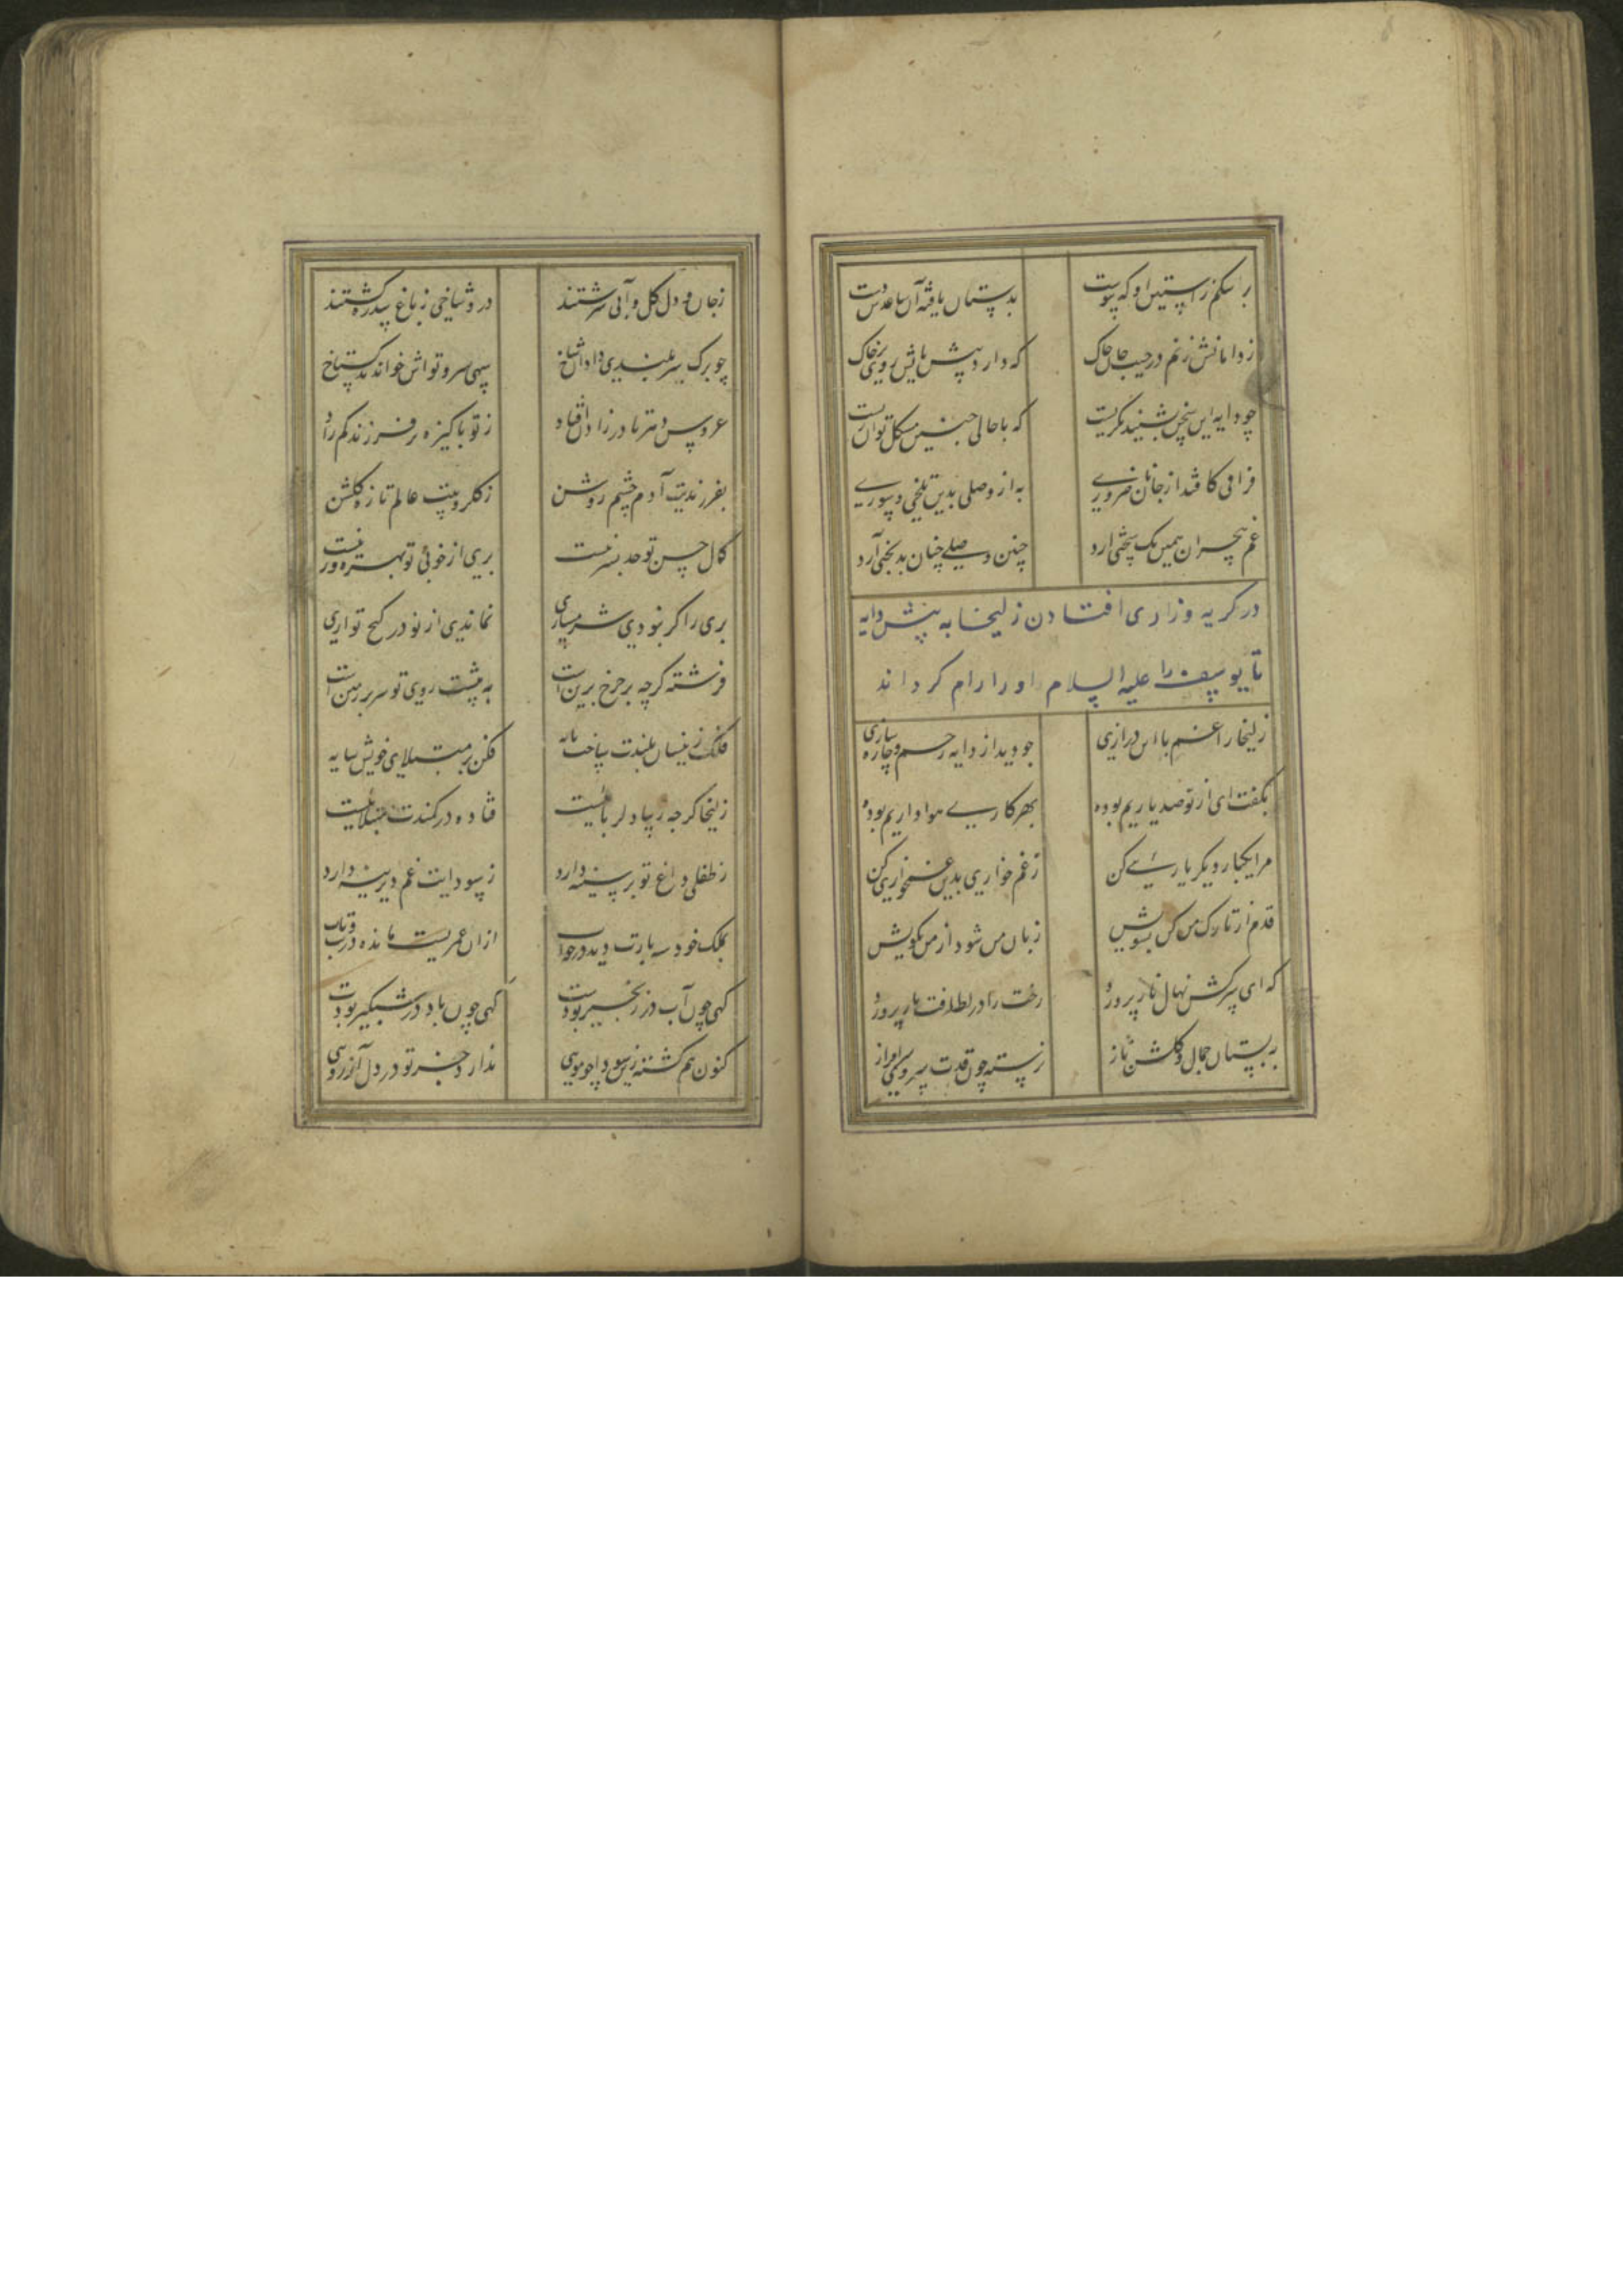 بر اشکم ز آستین او که پیوست بدستان یافته آن ساعد و دست
ز دامانش زنم در جیب جان چاک که دارد پیش پایش روی بر خاک
چو دایه این سخن بشنید بگریست که با حالی چنین مشکل توان زیست
فراقی کافتد از جانان ضروری به از وصلی بدین تلخی و شوری
غم هجران همین یک سختی آرد چنین وصلی چنان بدبختی آرد
در گریه و زاری افتادن زلیخا به پیش دایه
تا یوسف را علیه السلام او را رام گرداند
زلیخا را غم با این درازی چو دید از دایه رحم و چاره سازی
بگفت ای از تو صد یاریم بوده بهر کاری هواداریم بوده
مرا یکبار دیگر یاریی کن ز غم خواری بدین غمخواریی کن
قدم از تارک من کن بسویش زبان من شو و از من بگویش
که ای سرکش نهال ناز پرورد رخت را در لطافت ناز پرورد
به بستان جمال و گلشن ناز نرسته چون قدت سروی سرافراز
ز جان و دل گل و آبی سرشتند درو شاخی ز باغ سدره کشتند
چو برگ سربلندی داد آن شاخ سهی سرو تو اش خواندند گستاخ
عروس دهر تا در زادن افتاد ز تو پاکیزه تر فرزند کم زاد
بفرزندیت آدم چشم روشن ز گلرویت عالم تازه گلشن
کمال حسن تو حد بشر نیست پری از خوبی تو بهره ور نیست
پری را گر نبودی شرمساری نماندی از تو در کنج تواری
فرشته گرچه بر چرخ برین است به پشت روی تو سر بر زمین است
فلک زینسان بلندت ساخت پایه فکن بر مبتلای خویش سایه
زلیخا گرچه زیبا دلرباییست فتاده در کمندت مبتلاییست
ز طفلی داغ تو بر سینه دارد ز سودایت غم دیرینه دارد
بملک خود سه بارت دید در خواب ازان عمریست مانده در تب و تاب
گهی چون آب در زنجیر بودست گهی چون باد در شبگیر بودست
کنون هم گشته زین سودا چو مویی ندارد جز تو در دل آرزویی